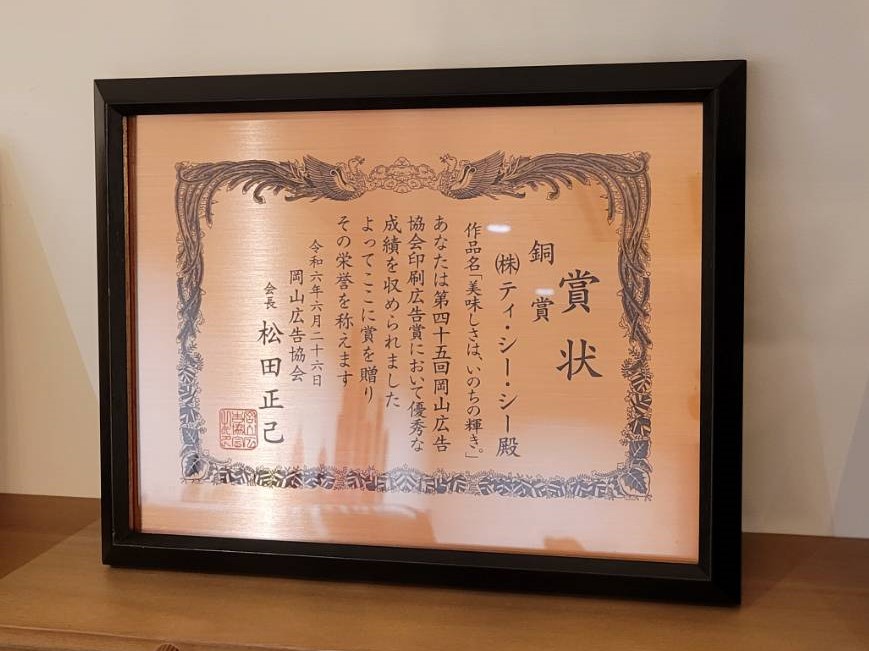 賞状
銅賞
㈱ティ・シー・シー殿
作品名「美味しさは、いのちの輝き。」
あなたは第四十五回岡山広告
協会印刷広告賞において優秀な
成績を収められました
よってここに賞を贈り
その栄誉を称えます
令和六年六月二十六日
岡山広告協会
会長 松田正己